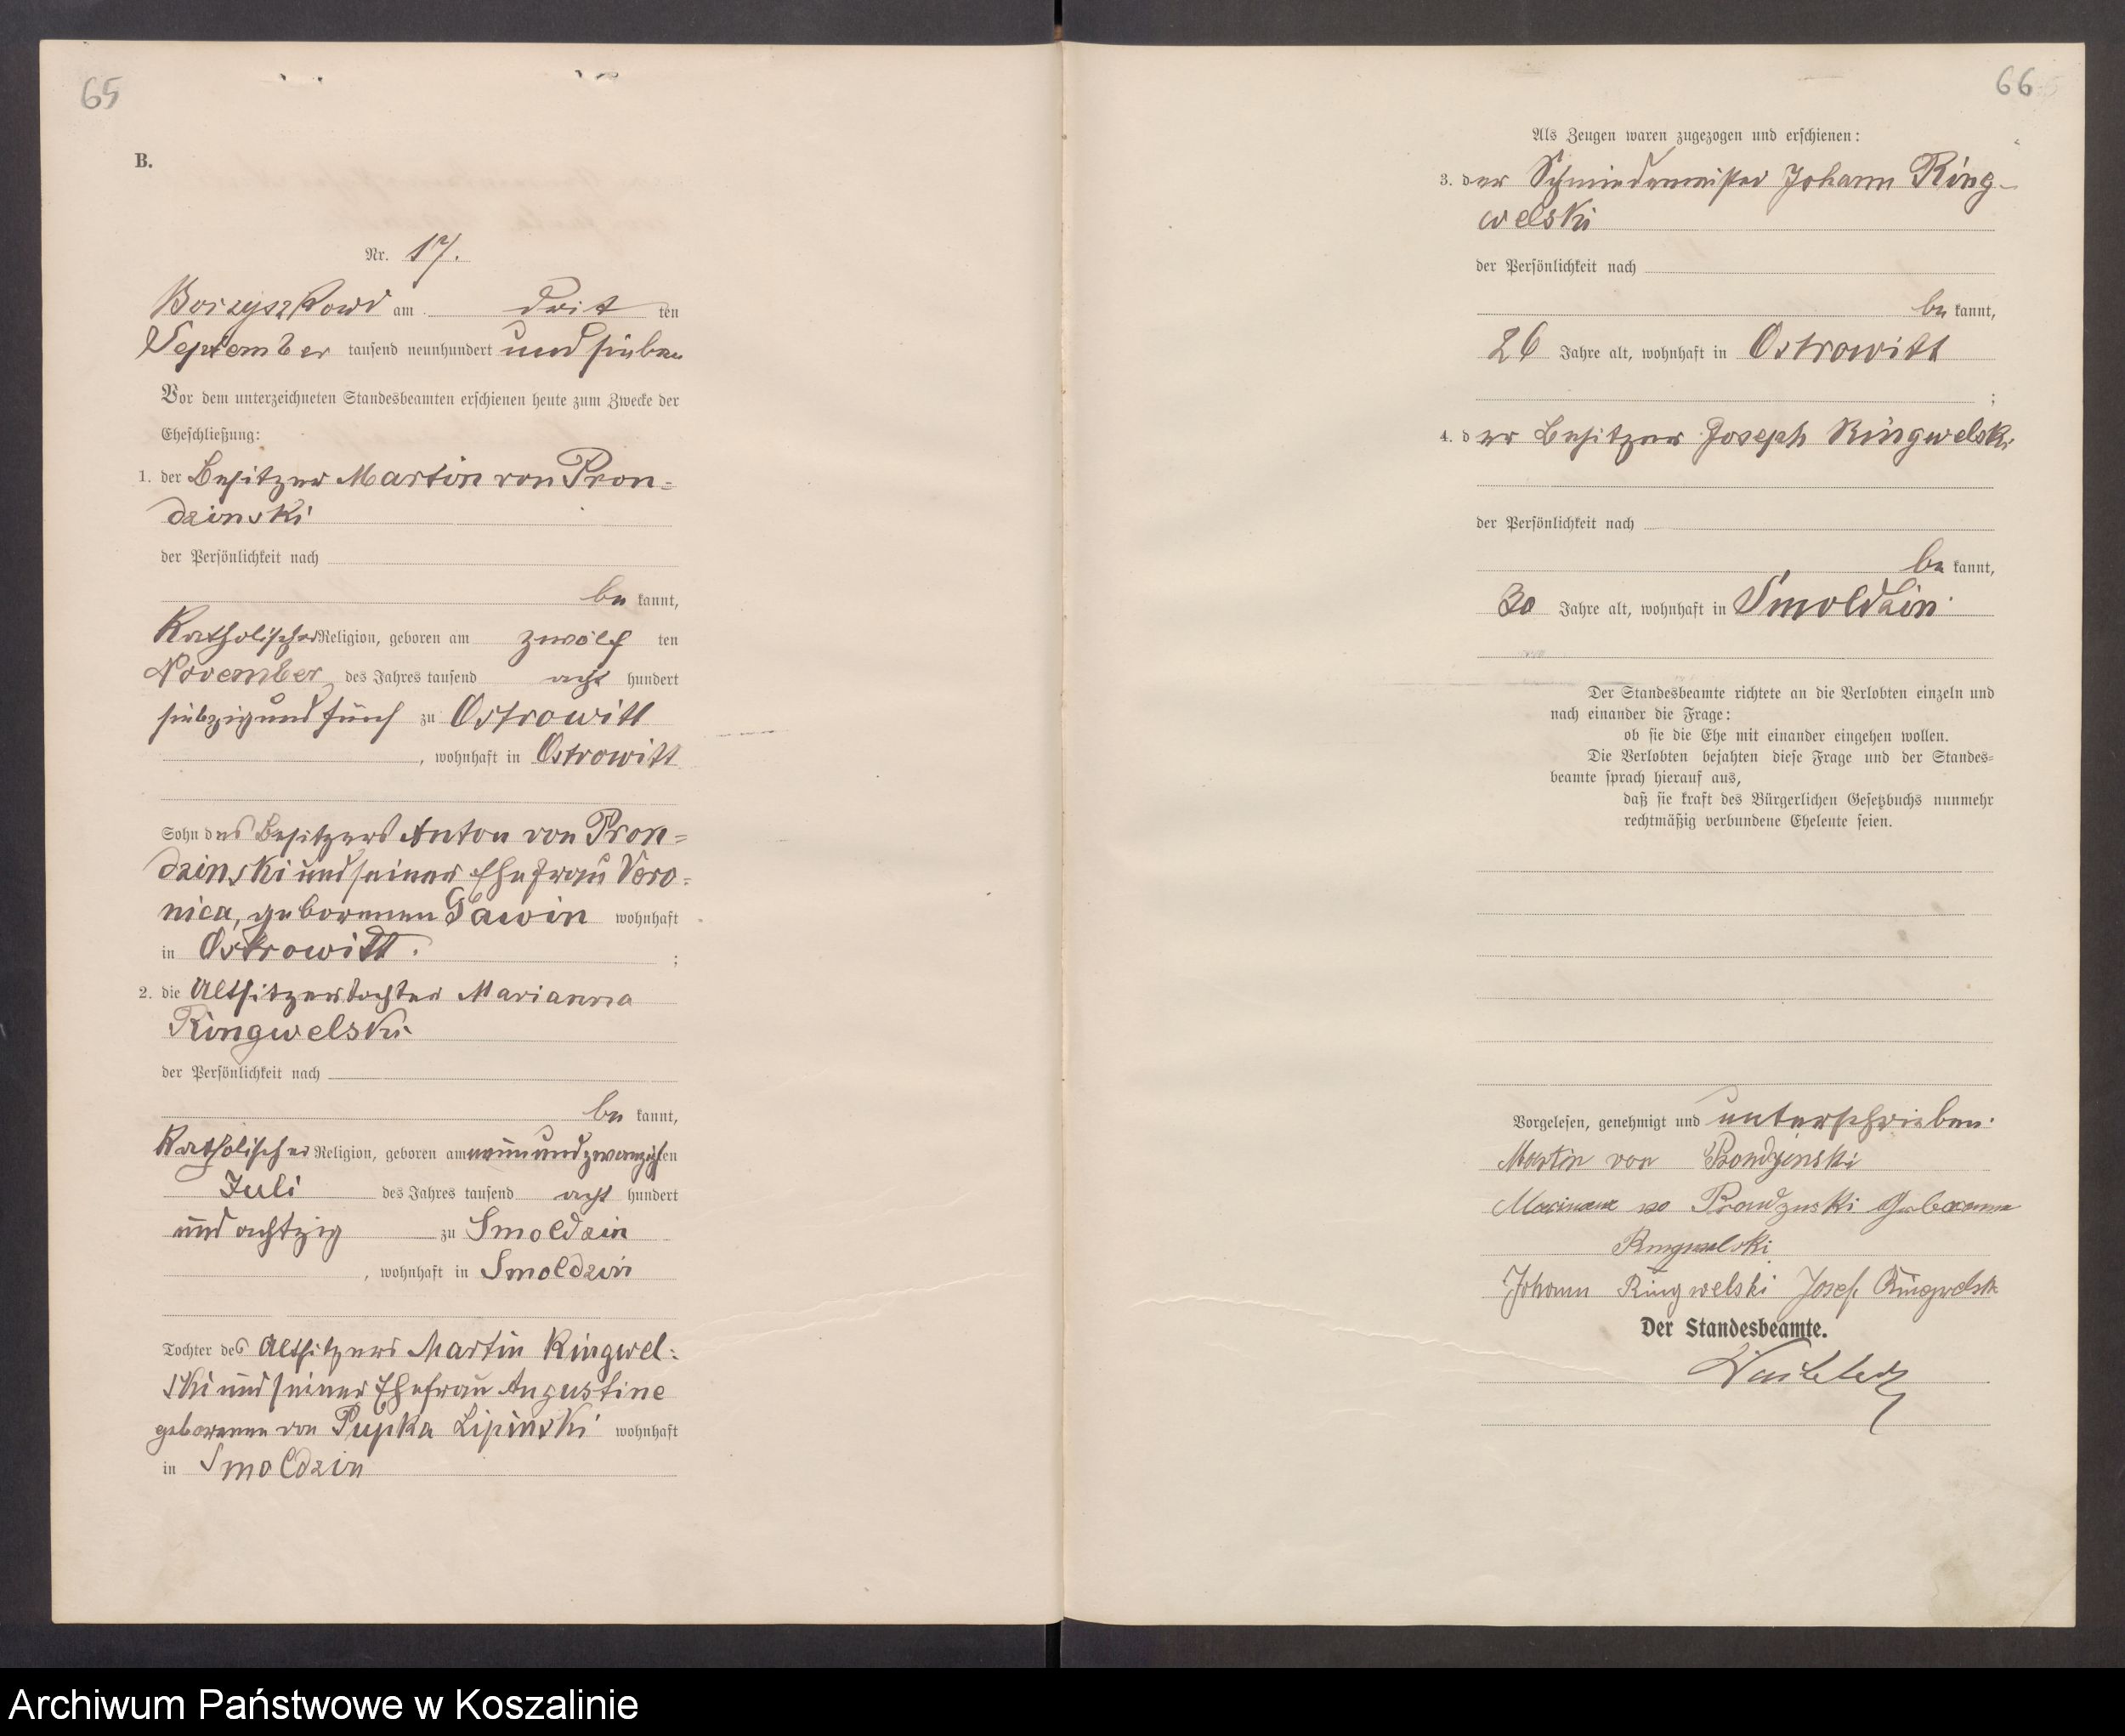 65
B.
Nr. 17.
Borzyszkowo am dritten
September tausend neunhundert und sieben
Vor dem unterzeichneten Standesbeamten erschienen heute zum Zwecke der
Eheschließung:
1. der Besitzer Martin von Pron=
dzinski
der Persönlichkeit nach
be kannt,
Katholischer Religion, geboren am zwölf ten
November des Jahres tausend acht hundert
siebzig und fünf zu Ostrowitt
, wohnhaft in Ostrowitt
Sohn des Besitzers Anton von Pron=
dzinski und seiner Ehefrau Vero=
nica, geborenen Gawin wohnhaft
in Ostrowitt. ;
2. die Altsitzertochter Marianna
Ringwelski
der Persönlichkeit nach
be kannt,
Katholischer Religion, geboren am neunundzwanzigsten
Juli des Jahres tausend acht hundert
und achtzig zu Smoldzin
, wohnhaft in Smoldzin
Tochter des Altsitzers Martin Ringwel=
ski und seiner Ehefrau Augustine
geborenen von Pupka Lipinski wohnhaft
in Smoldzin
66
Als Zeugen waren zugezogen und erschienen:
3. der Schmiedemeister Johann Ring-
welski
der Persönlichkeit nach
be kannt,
26 Jahre alt, wohnhaft in Ostrowitt
;
4. der Besitzer Joseph Ringwelski
der Persönlichkeit nach
be kannt,
30 Jahre alt, wohnhaft in Smoldzin.
Der Standesbeamte richtete an die Verlobten einzeln und
nach einander die Frage:
ob sie die Ehe mit einander eingehen wollen.
Die Verlobten bejahten diese Frage und der Standes=
beamte sprach hierauf aus,
daß sie kraft des Bürgerlichen Gesetzbuchs nunmehr
rechtmäßig verbundene Eheleute seien.
Vorgelesen, genehmigt und unterschrieben.
Martin von Prondzinski
Prondzinski geborenne
Ringwelski
Johann Ringwelski Josef Ringwelski
Der Standesbeamte.
Archiwum Państwowe w Koszalinie